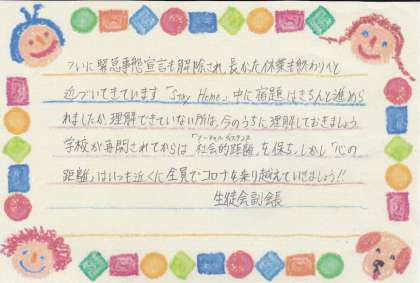 ついに緊急事態宣言も解除され、長かった休業も終わりへと
近づいてきています「Stay Home」中に宿題はきちんと進め
られましたか、理解できていない所は、今のうちに理解しておきましょう
学校が再開されてからは「社会的距離」を保ち、しかし「心の
ソーシャルディスタンス
距離」はいつも近くに全員でコロナを乗り越えていきましょう!!
生徒会副会長